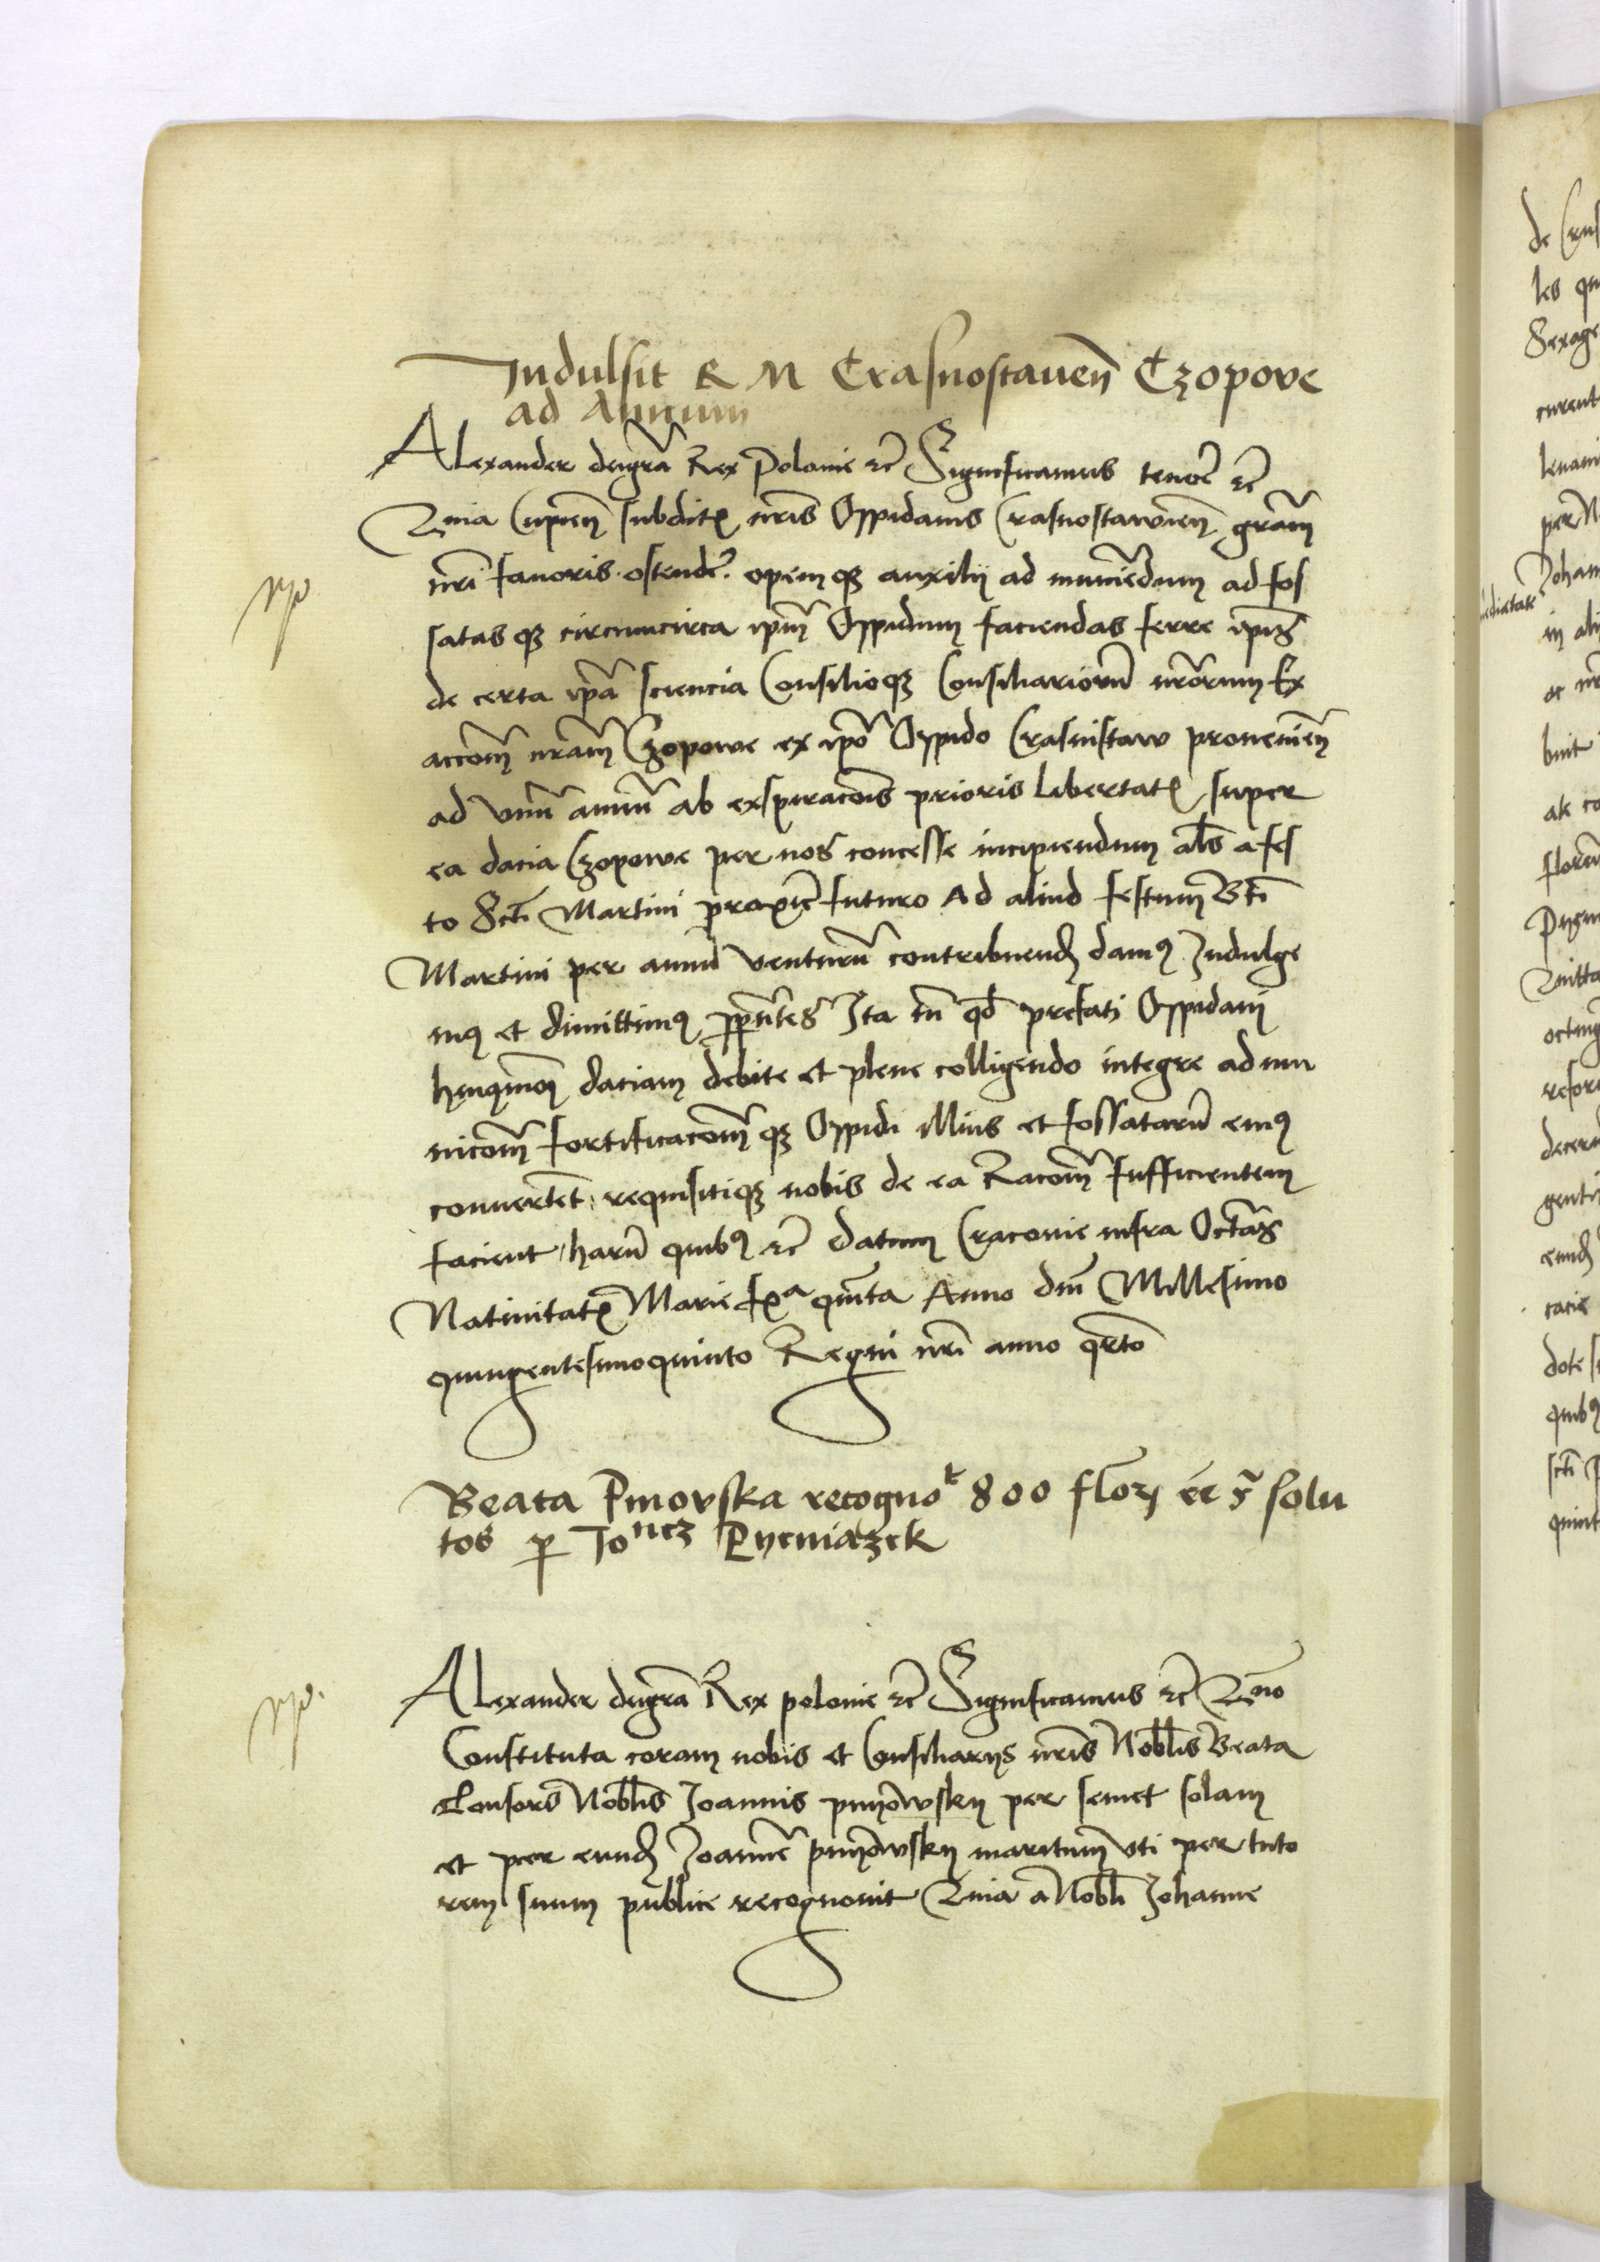 Indulsit R M Crasnostauen̄ Czopove
ad Annum
Alexander deigr̄a Rex Polonie etc̄ Significamus tenoꝛ̄ etc̄
Quia Cupien̄ subditꝭ nr̄is Oppidanis Crasnostawien̄ gr̄am
nr̄i fauoris ostendeꝛ̄ opemqꝫ auxilij ad muniēdum ad fos
satasqꝫ circumcirca ip̄m Oppidum faciendas ferre ip̄is
de certa ip̄a sciencia Consilioqꝫ Consiliariorū nr̄orum Ex
accōem nr̄am Czopowe ex ip̄o Oppido Crasnistaw prouenien̄
ad vnū annū ab expiracōis prioris libertatꝭ super
ea dacia Czopowe per nos concesse incipiendum al̄s a fes
to Sctī Martini proxīe futuro Ad aliud festum Btī
Martini per annū venturū contribuendꝭ damꝰ Indulge
mꝰ et dimittimꝰ pn̄tes Ita tn̄ qd̄ prefati Oppidani
hmōi daciam debite et plene colligendo integre ad mu
nicōem fortificacōemqꝫ Oppidi illius et fossatarū eiuꝰ
conuerteт̄ requisitiqꝫ nobis de ea Racōem sufficientem
facient harū quibꝰ etc̄ Datum Cracouie infra Octāas
Natiuitatꝭ Marie fꝭª quīta Anno dnī Millesimo
quingentesimoquinto Regni nr̄i anno qr̄to
Beata Pmovska recognoᵗ 800 floꝝ ee s̄ solu
tos ꝑ Joⁿᵉᶻ Pyeniazek
Alexander deigr̄a Rex polonie etc̄ Significamus etc̄ Quō
Constituta coram nobis et Consiliarijs nr̄is Nobl̄is Beata
Consors Nobl̄is Joannis pmōwsky per semet solam
et per eundꝭ Joannē pmōwsky maritum vti per tuto
rem suum publice recognouit Quia a Nobl̄i Johanne